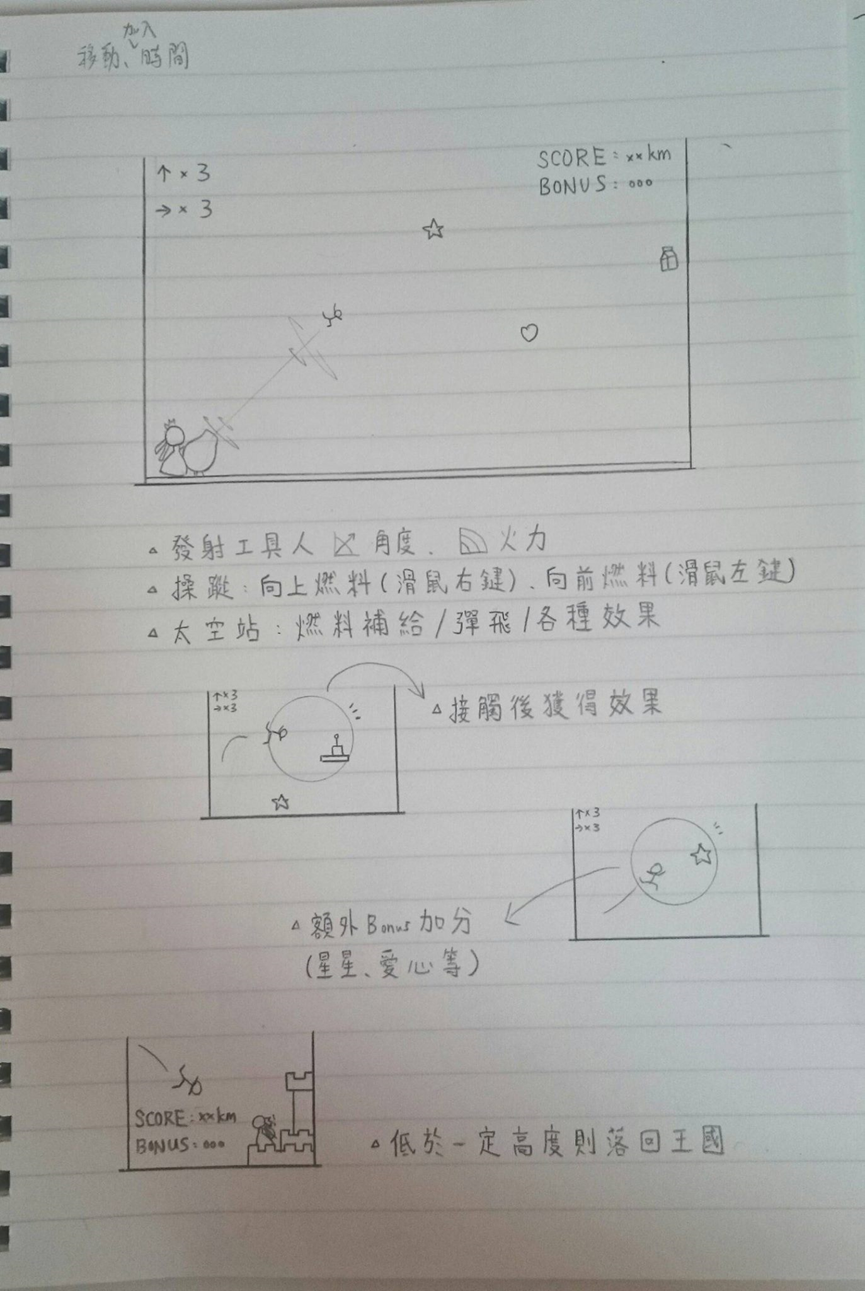 加入
移動、時間
↑×3
→×3
SCORE:××km
BONUS:ooo
△ 發射工具人 角度. 火力
△ 操蹤:向上燃料(滑鼠右鍵)、向前燃料(滑鼠左鍵)
△ 太空站:燃料補給/彈飛/各種效果
↑×3
→×3
△接觸後獲得效果
↑×3
→×3
△ 額外Bonus加分
(星星、愛心等)
SCORE:××km
BONUS:ooo
△低於一定高度則落回王國